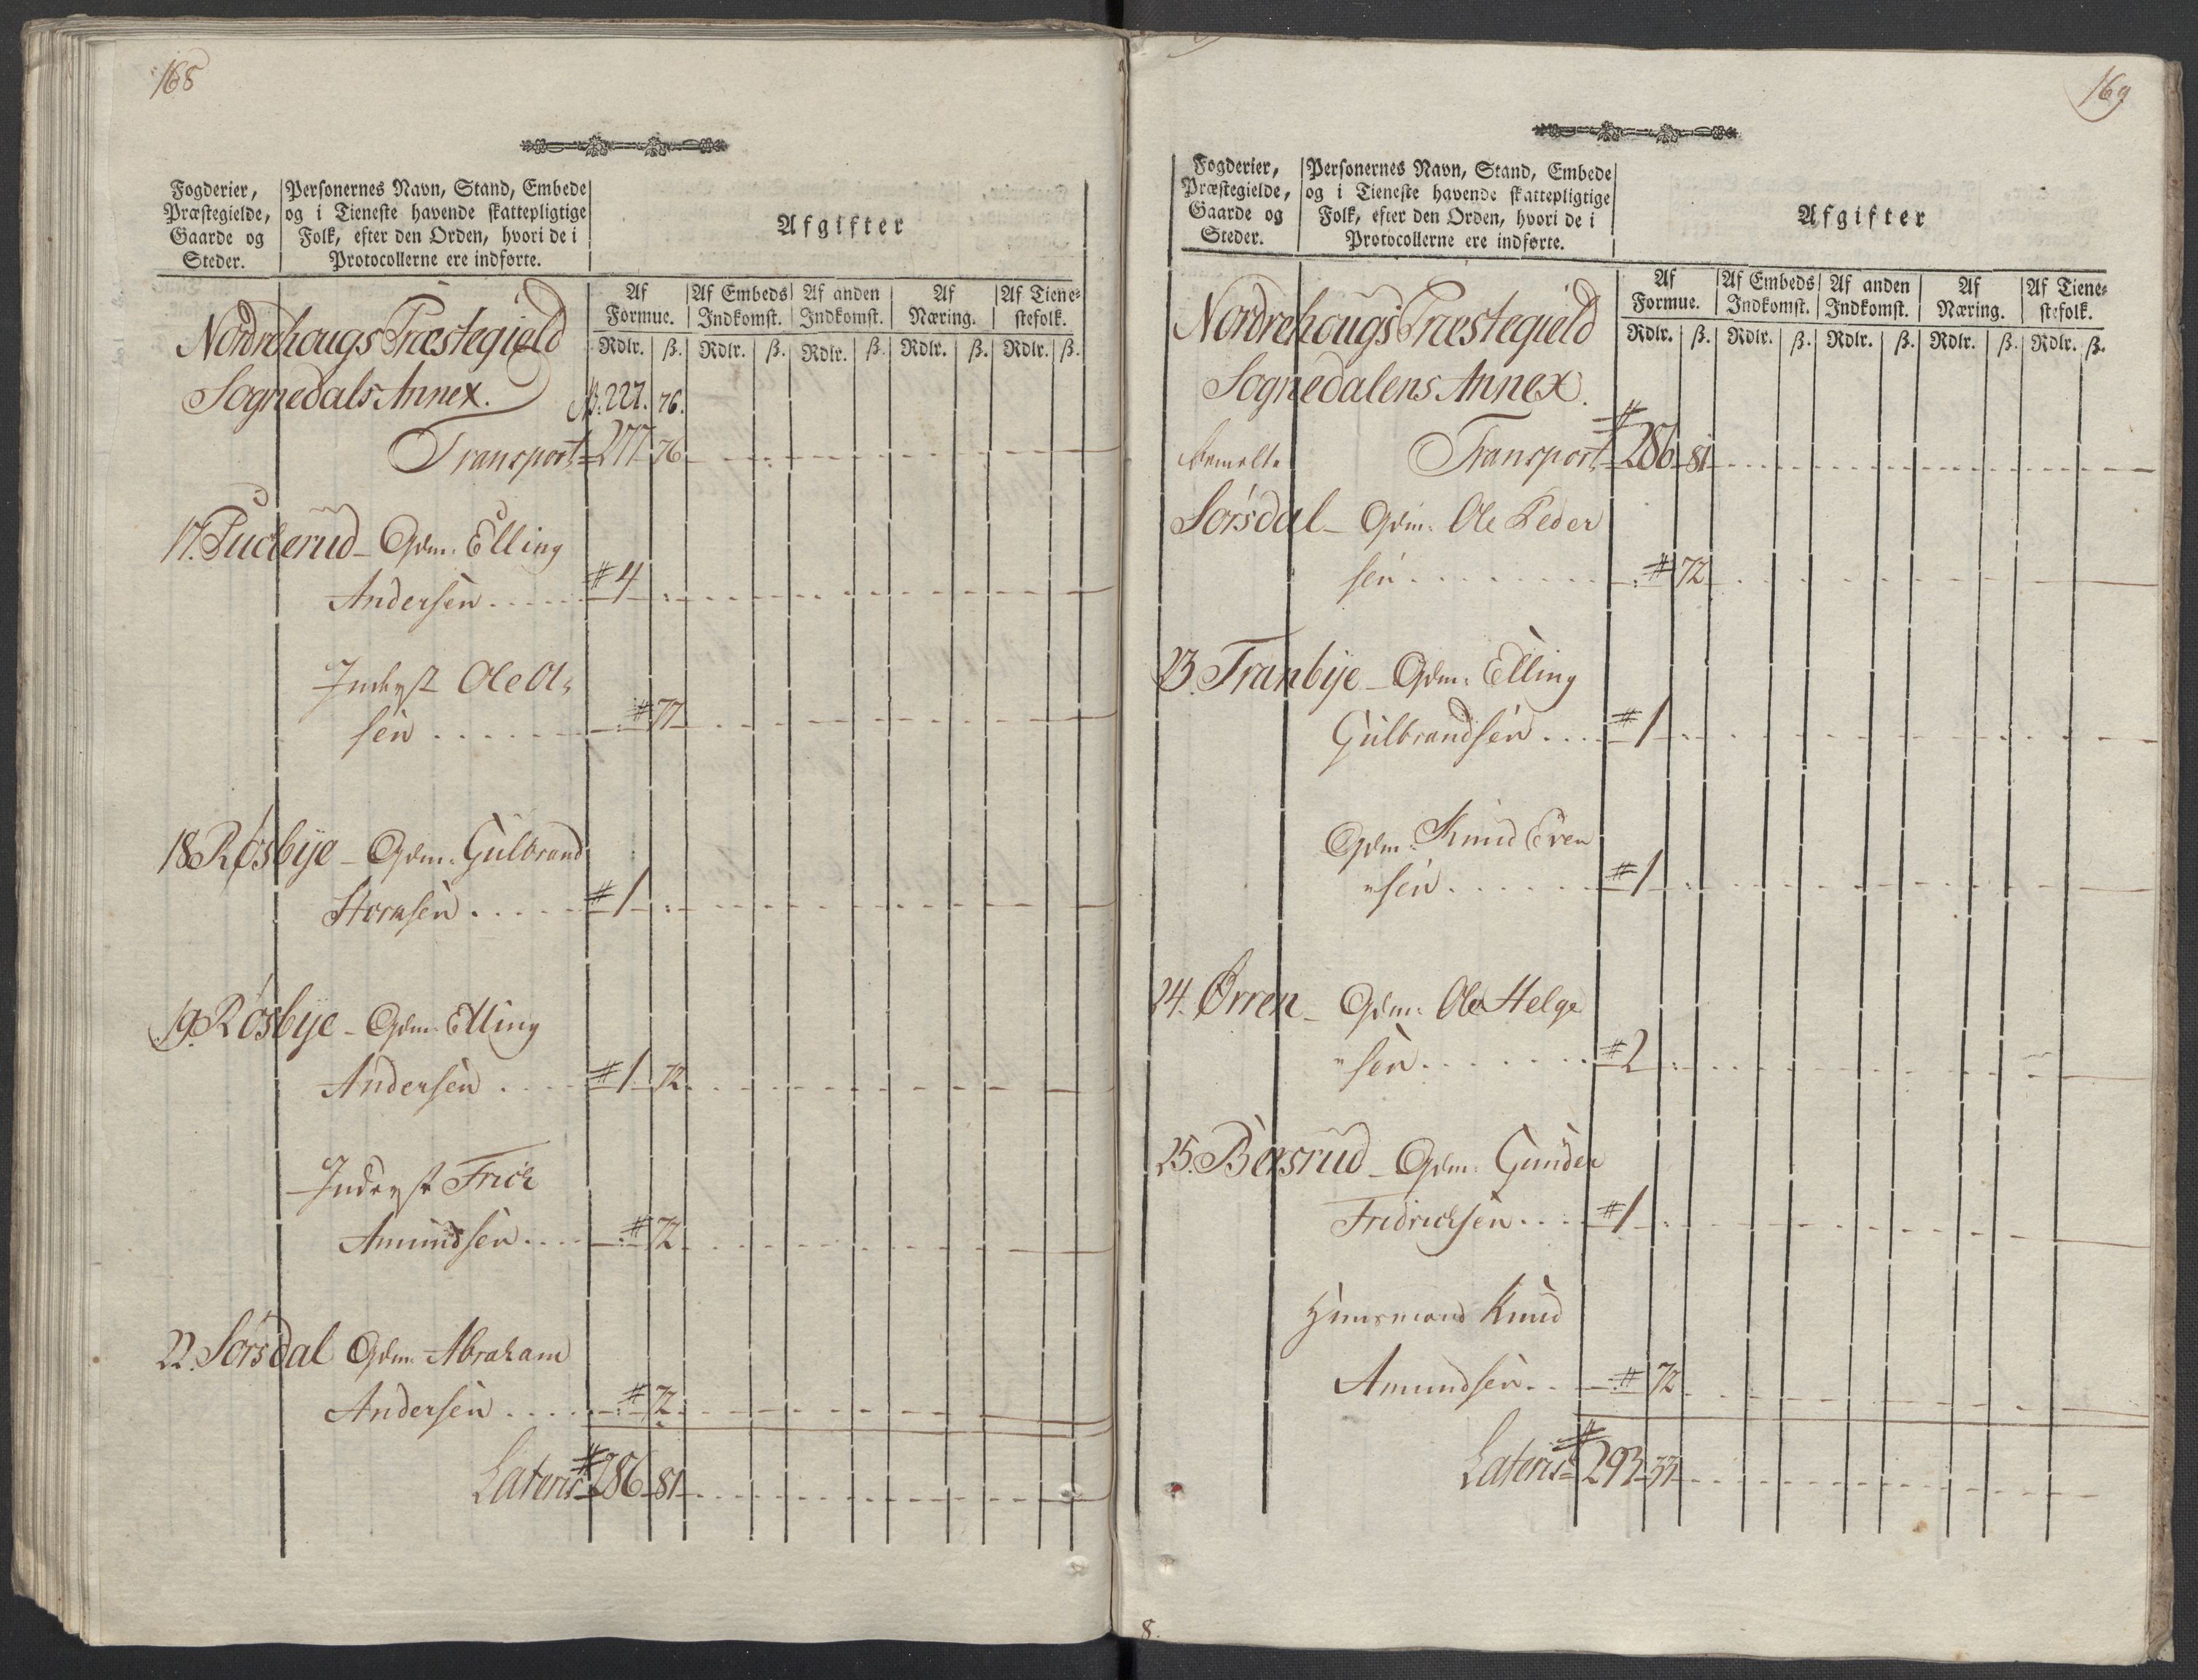 168
Fogderier,
Præstegielde,
Gaarde og
Steder.
Personernes Navn, Stand, Embede
og i Tieneste havende skattepligtige
Folk, efter den Orden, hvori de i
Protocollerne ere indførte.
Afgifter
Af Formue. Af Embeds Indkomst. Af anden Indkomst. Af Næring. Af Tienestefolk.
Rdlr. ß. Rdlr. ß. Rdlr. ß. Rdlr. ß. Rdlr. ß.
Nordrehougs Præstegield
Sognedals Annex. 227. 76.
Transport 277 76
17. Puderud - Gdm. Elling
Andersen # 4
Inderst Ole Ol-
sen # 77
18 Røsbye - Gdm. Gulbrand
# 1
19. Røsbye - Gdm. Elling
Andersen # 1 72
Inderst Frick
Amundsen # 72
22. Sørsdal Gdm. Abraham
Andersen # 72
Lateris # 286 81
169
Fogderier,
Præstegielde,
Gaarde og
Steder.
Personernes Navn, Stand, Embede
og i Tieneste havende skattepligtige
Folk, efter den Orden, hvori de i
Protocollerne ere indførte.
Afgifter
Af Formue. Af Embeds Indkomst. Af anden Indkomst. Af Næring. Af Tienestefolk.
Rdlr. ß. Rdlr. ß. Rdlr. ß. Rdlr. ß. Rdlr. ß.
Nordrehougs Præstegield
Sognedalens Annex.
bemelte Transport # 286 81
Sørsdal - Gdm. Ole Peder
sen # 72
23. Tranbye - Gdm. Elling
Gulbrandsen # 1
Gdm. Knud Even
sen # 1
24. Ørren - Gdm. Ole Helge
sen # 2
25. Bersrud - Gdm. Gunder
Fridrichsen # 1
Huusmand Knud
Amundsen # 72
Lateris # 293 33
8.